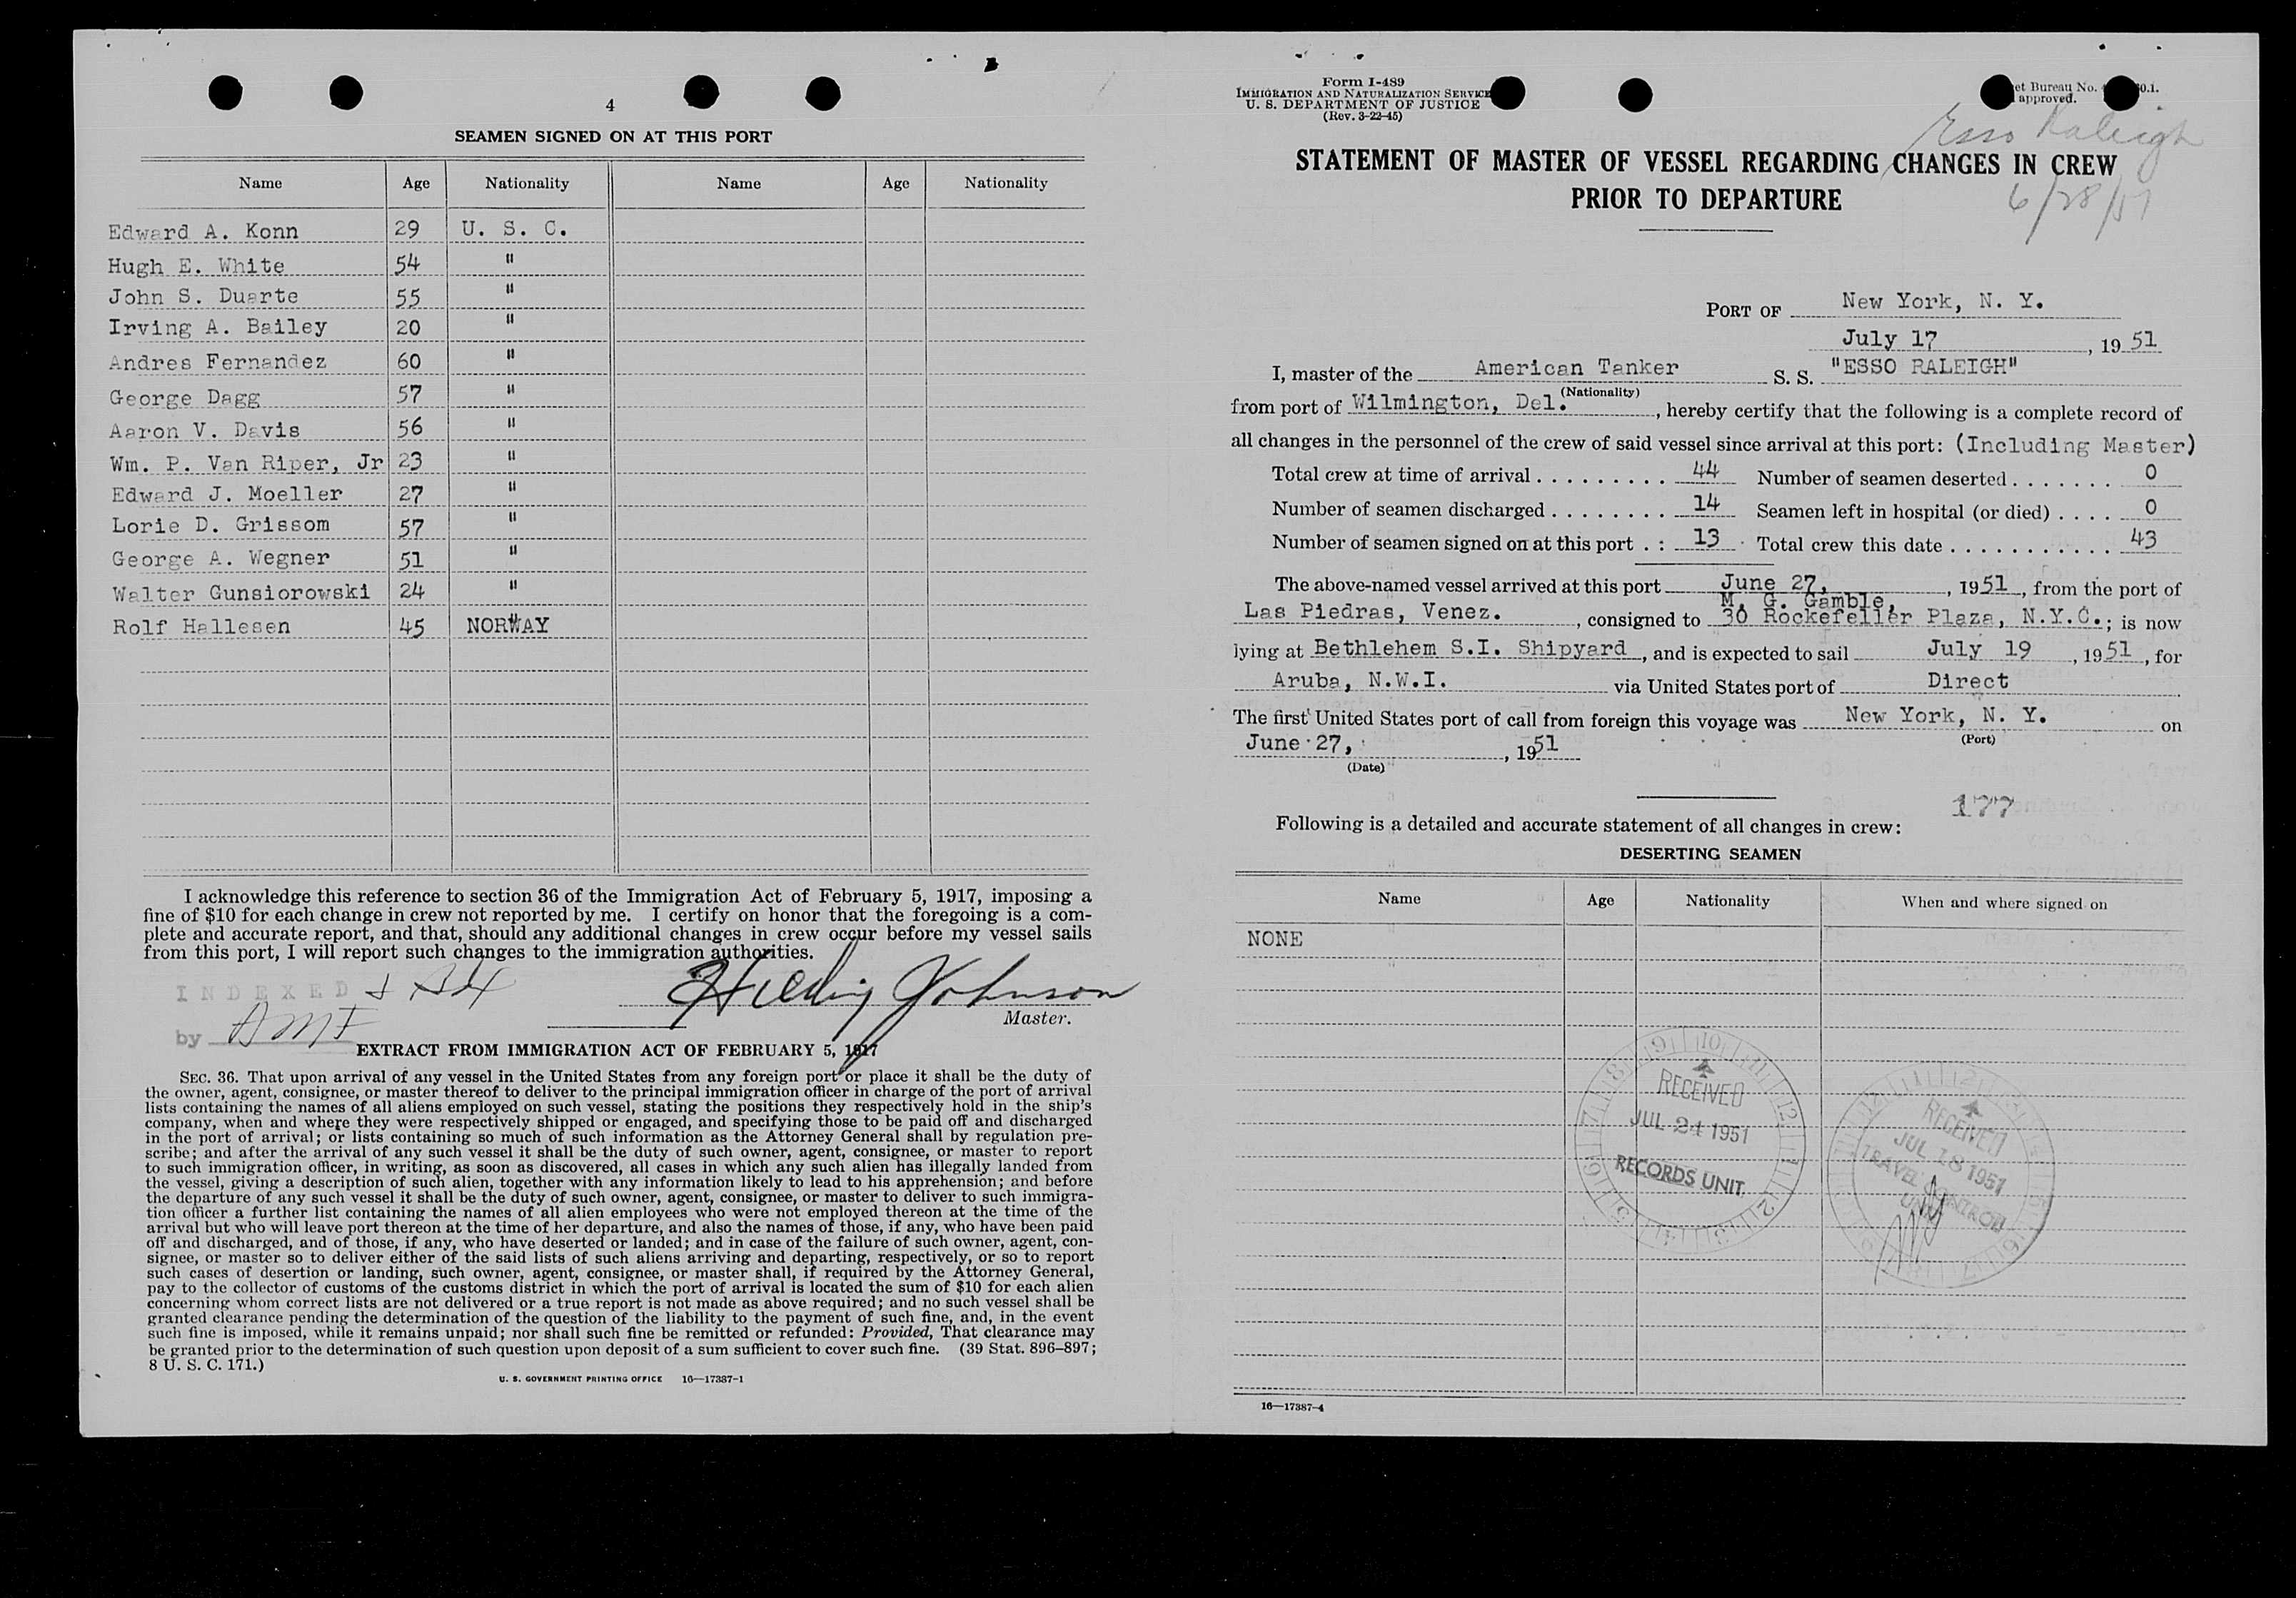 4
SEAMEN SIGNED ON AT THIS PORT
Name Age Nationality Name Age Nationality
Edward A. Konn 29 U. S. C.
Hugh E. White 54 "
John S. Duarte 55 "
Irving A. Bailey 20 "
Andres Fernandez 60 "
George Dagg 57 "
Aaron V. Davis 56 "
Wm. P. Van Riper, Jr 23 "
Edward J. Moeller 27 "
Lorie D. Grissom 57 "
George A. Wegner 51 "
Walter Gunsiorowski 24 "
Rolf Hallesen 45 NORWAY
I acknowledge this reference to section 36 of the Immigration Act of February 5, 1917, imposing a
fine of $10 for each change in crew not reported by me. I certify on honor that the foregoing is a com-
plete and accurate report, and that, should any additional changes in crew occur before my vessel sails
from this port, I will report such changes to the immigration authorities.
INDEXED
Hilding Johnson
Master.
by AMF
EXTRACT FROM IMMIGRATION ACT OF FEBRUARY 5, 1917
SEC. 36. That upon arrival of any vessel in the United States from any foreign port or place it shall be the duty of
the owner, agent, consignee, or master thereof to deliver to the principal immigration officer in charge of the port of arrival
lists containing the names of all aliens employed on such vessel, stating the positions they respectively hold in the ship's
company, when and where they were respectively shipped or engaged, and specifying those to be paid off and discharged
in the port of arrival; or lists containing so much of such information as the Attorney General shall by regulation pre-
scribe; and after the arrival of any such vessel it shall be the duty of such owner, agent, consignee, or master to report
to such immigration officer, in writing, as soon as discovered, all cases in which any such alien has illegally landed from
the vessel, giving a description of such alien, together with any information likely to lead to his apprehension; and before
the departure of any such vessel it shall be the duty of such owner, agent, consignee, or master to deliver to such immigra-
tion officer a further list containing the names of all alien employees who were not employed thereon at the time of the
arrival but who will leave port thereon at the time of her departure, and also the names of those, if any, who have been paid
off and discharged, and of those, if any, who have deserted or landed; and in case of the failure of such owner, agent, con-
signee, or master so to deliver either of the said lists of such aliens arriving and departing, respectively, or so to report
such cases of desertion or landing, such owner, agent, consignee, or master shall, if required by the Attorney General,
pay to the collector of customs of the customs district in which the port of arrival is located the sum of $10 for each alien
concerning whom correct lists are not delivered or a true report is not made as above required; and no such vessel shall be
granted clearance pending the determination of the question of the liability to the payment of such fine, and, in the event
such fine is imposed, while it remains unpaid; nor shall such fine be remitted or refunded: Provided, That clearance may
be granted prior to the determination of such question upon deposit of a sum sufficient to cover such fine. (39 Stat. 896–897;
8 U. S. C. 171.)
U. S. GOVERNMENT PRINTING OFFICE 16—17387-1
Form I-489
IMMIGRATION AND NATURALIZATION SERVICE
U. S. DEPARTMENT OF JUSTICE
(Rev. 3-22-45)
et Bureau No. 0.1.
approved.
Esso Raleigh
STATEMENT OF MASTER OF VESSEL REGARDING CHANGES IN CREW
PRIOR TO DEPARTURE
6/28/51
PORT OF New York, N. Y.
July 17, 1951
I, master of the American Tanker S. S. "ESSO RALEIGH"
(Nationality)
from port of Wilmington, Del., hereby certify that the following is a complete record of
all changes in the personnel of the crew of said vessel since arrival at this port: (Including Master)
Total crew at time of arrival . . . . . . . . . 44 Number of seamen deserted . . . . . . . 0
Number of seamen discharged . . . . . . . . 14 Seamen left in hospital (or died) . . . . 0
Number of seamen signed on at this port . : 13 Total crew this date . . . . . . . . . . . . 43
The above-named vessel arrived at this port June 27, 1951, from the port of
M. G. Gamble,
Las Piedras, Venez., consigned to 30 Rockefeller Plaza, N.Y.C.; is now
lying at Bethlehem S.I. Shipyard, and is expected to sail July 19, 1951, for
Aruba, N.W.I. via United States port of Direct
The first United States port of call from foreign this voyage was New York, N. Y. on
(Port)
June 27, 1951
(Date)
177
Following is a detailed and accurate statement of all changes in crew:
DESERTING SEAMEN
Name Age Nationality When and where signed on
NONE
RECEIVED
JUL 24 1951
RECORDS UNIT
RECEIVED
JUL 18 1951
TRAVEL CONTROL
UNIT
16—17387-4